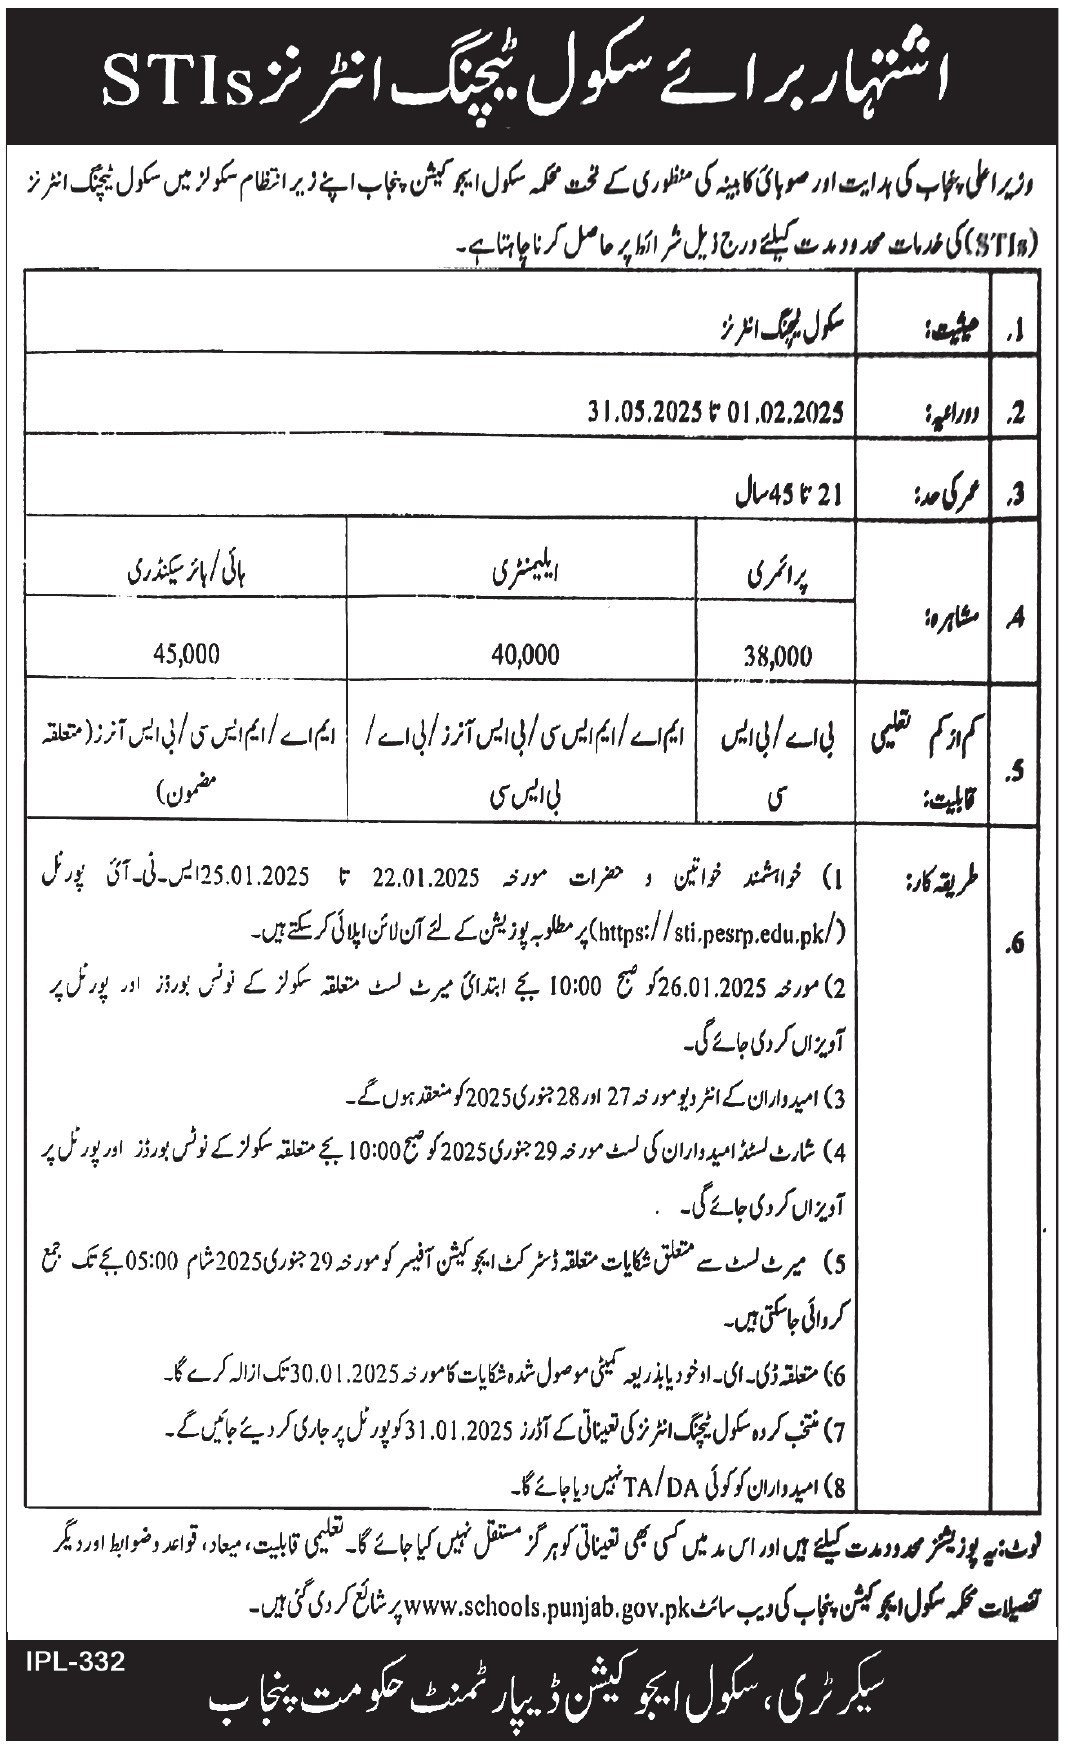 اشتہار برائے سکول ٹیچنگ انٹرنز STIs
وزیر اعلیٰ پنجاب کی ہدایت اور صوبائی کابینہ کی منظوری کے تحت محکمہ سکول ایجوکیشن پنجاب اپنے زیر انتظام سکولز میں سکول ٹیچنگ انٹرنز
(STIs) کی خدمات محدود مدت کیلئے درج ذیل شرائط پر حاصل کرنا چاہتا ہے۔
1. حیثیت: سکول ٹیچنگ انٹرنز
2. دورانیہ: 01.02.2025 تا 31.05.2025
3. عمر کی حد: 21 تا 45 سال
پرائمری ایلیمنٹری ہائی/ہائر سیکنڈری
4. مشاہرہ:
38,000 40,000 45,000
5. کم از کم تعلیمی بی اے/بی ایس ایم اے/ایم ایس سی/بی ایس آنرز/بی اے/ ایم اے/ایم ایس سی/بی ایس آنرز(متعلقہ
قابلیت: سی بی ایس سی مضمون)
6. طریقہ کار: 1) خواہشمند خواتین و حضرات مورخہ 22.01.2025 تا 25.01.2025 ایس۔ٹی۔آئی پورٹل
(https://sti.pesrp.edu.pk/) پر مطلوبہ پوزیشن کے لئے آن لائن اپلائی کر سکتے ہیں۔
2) مورخہ 26.01.2025 کو صبح 10:00 بجے ابتدائی میرٹ لسٹ متعلقہ سکولز کے نوٹس بورڈز اور پورٹل پر
آویزاں کر دی جائے گی۔
3) امیدواران کے انٹرویو مورخہ 27 اور 28 جنوری 2025 کو منعقد ہوں گے۔
4) شارٹ لسٹڈ امیدواران کی لسٹ مورخہ 29 جنوری 2025 کو صبح 10:00 بجے متعلقہ سکولز کے نوٹس بورڈز اور پورٹل پر
آویزاں کر دی جائے گی۔
5) میرٹ لسٹ سے متعلق شکایات متعلقہ ڈسٹرکٹ ایجوکیشن آفیسر کو مورخہ 29 جنوری 2025 شام 05:00 بجے تک جمع
کروائی جا سکتی ہیں۔
6) متعلقہ ڈی۔ای۔او خود یا بذریعہ کمیٹی موصول شدہ شکایات کا مورخہ 30.01.2025 تک ازالہ کرے گا۔
7) منتخب کردہ سکول ٹیچنگ انٹرنز کی تعیناتی کے آڈرز 31.01.2025 کو پورٹل پر جاری کر دیئے جائیں گے۔
8) امیدواران کو کوئی TA/DA نہیں دیا جائے گا۔
نوٹ: یہ پوزیشنز محدود مدت کیلئے ہیں اور اس مد میں کسی بھی تعیناتی کو ہرگز مستقل نہیں کیا جائے گا۔ تعلیمی قابلیت، میعاد، قواعد و ضوابط اور دیگر
تفصیلات محکمہ سکول ایجوکیشن پنجاب کی ویب سائٹ www.schools.punjab.gov.pk پر شائع کر دی گئی ہیں۔
IPL-332
سیکرٹری، سکول ایجوکیشن ڈیپارٹمنٹ حکومت پنجاب